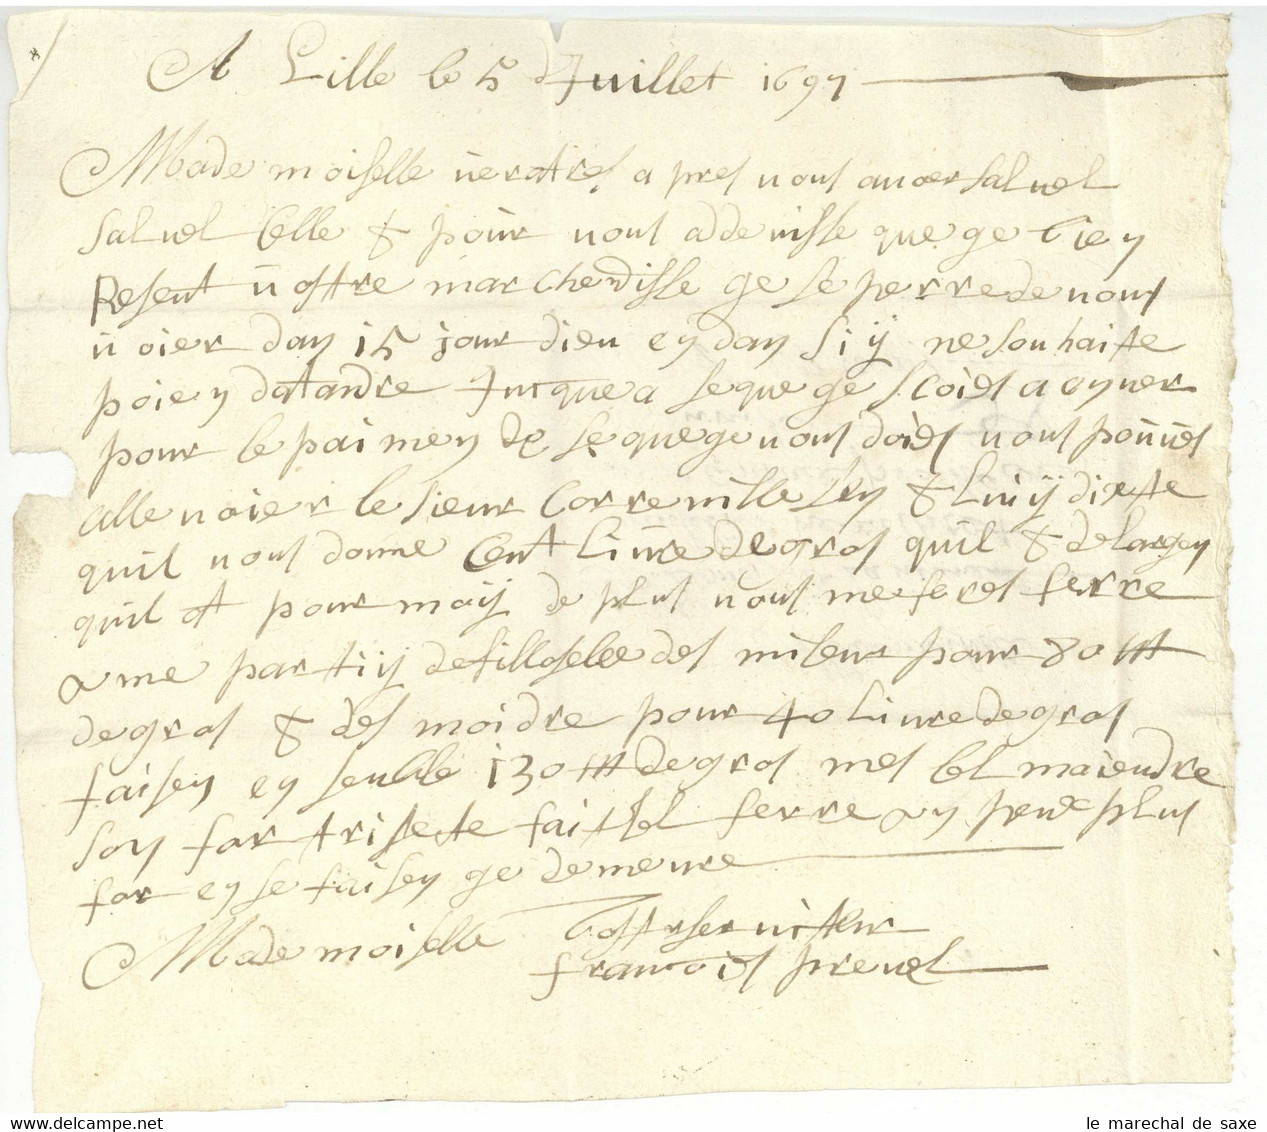 A Lille le 5 d Juillet 1697
Mademoiselle apres vous avoer salvel
salvel Celle & pour vous addevisse que ge bien
Resent vostre marchendisse ge se perre de vous
voier dan 15 jour dieu eydan si ij ne souhaite
poien datandre Jucque a seque ge scoies a
pour le paimen de seque ge vous doies vous pouves
alle voier le sieur Correville & luiij dirtte
quil vous donne Cent livre de gros quil & de largen
quil at pour moij de plus vous me feres ferre
ane partiij defilloselle des mileur pour 80 lll
de gros & des moidre pour 40 livre de gros
faisen en senble 130 lll de gros mes les maiendre
son for trisette faittes ferre an peu plus
for en se faisen ge demeure
Mademoiselle Vottr serviteur
francois prevel
le marechal de saxe